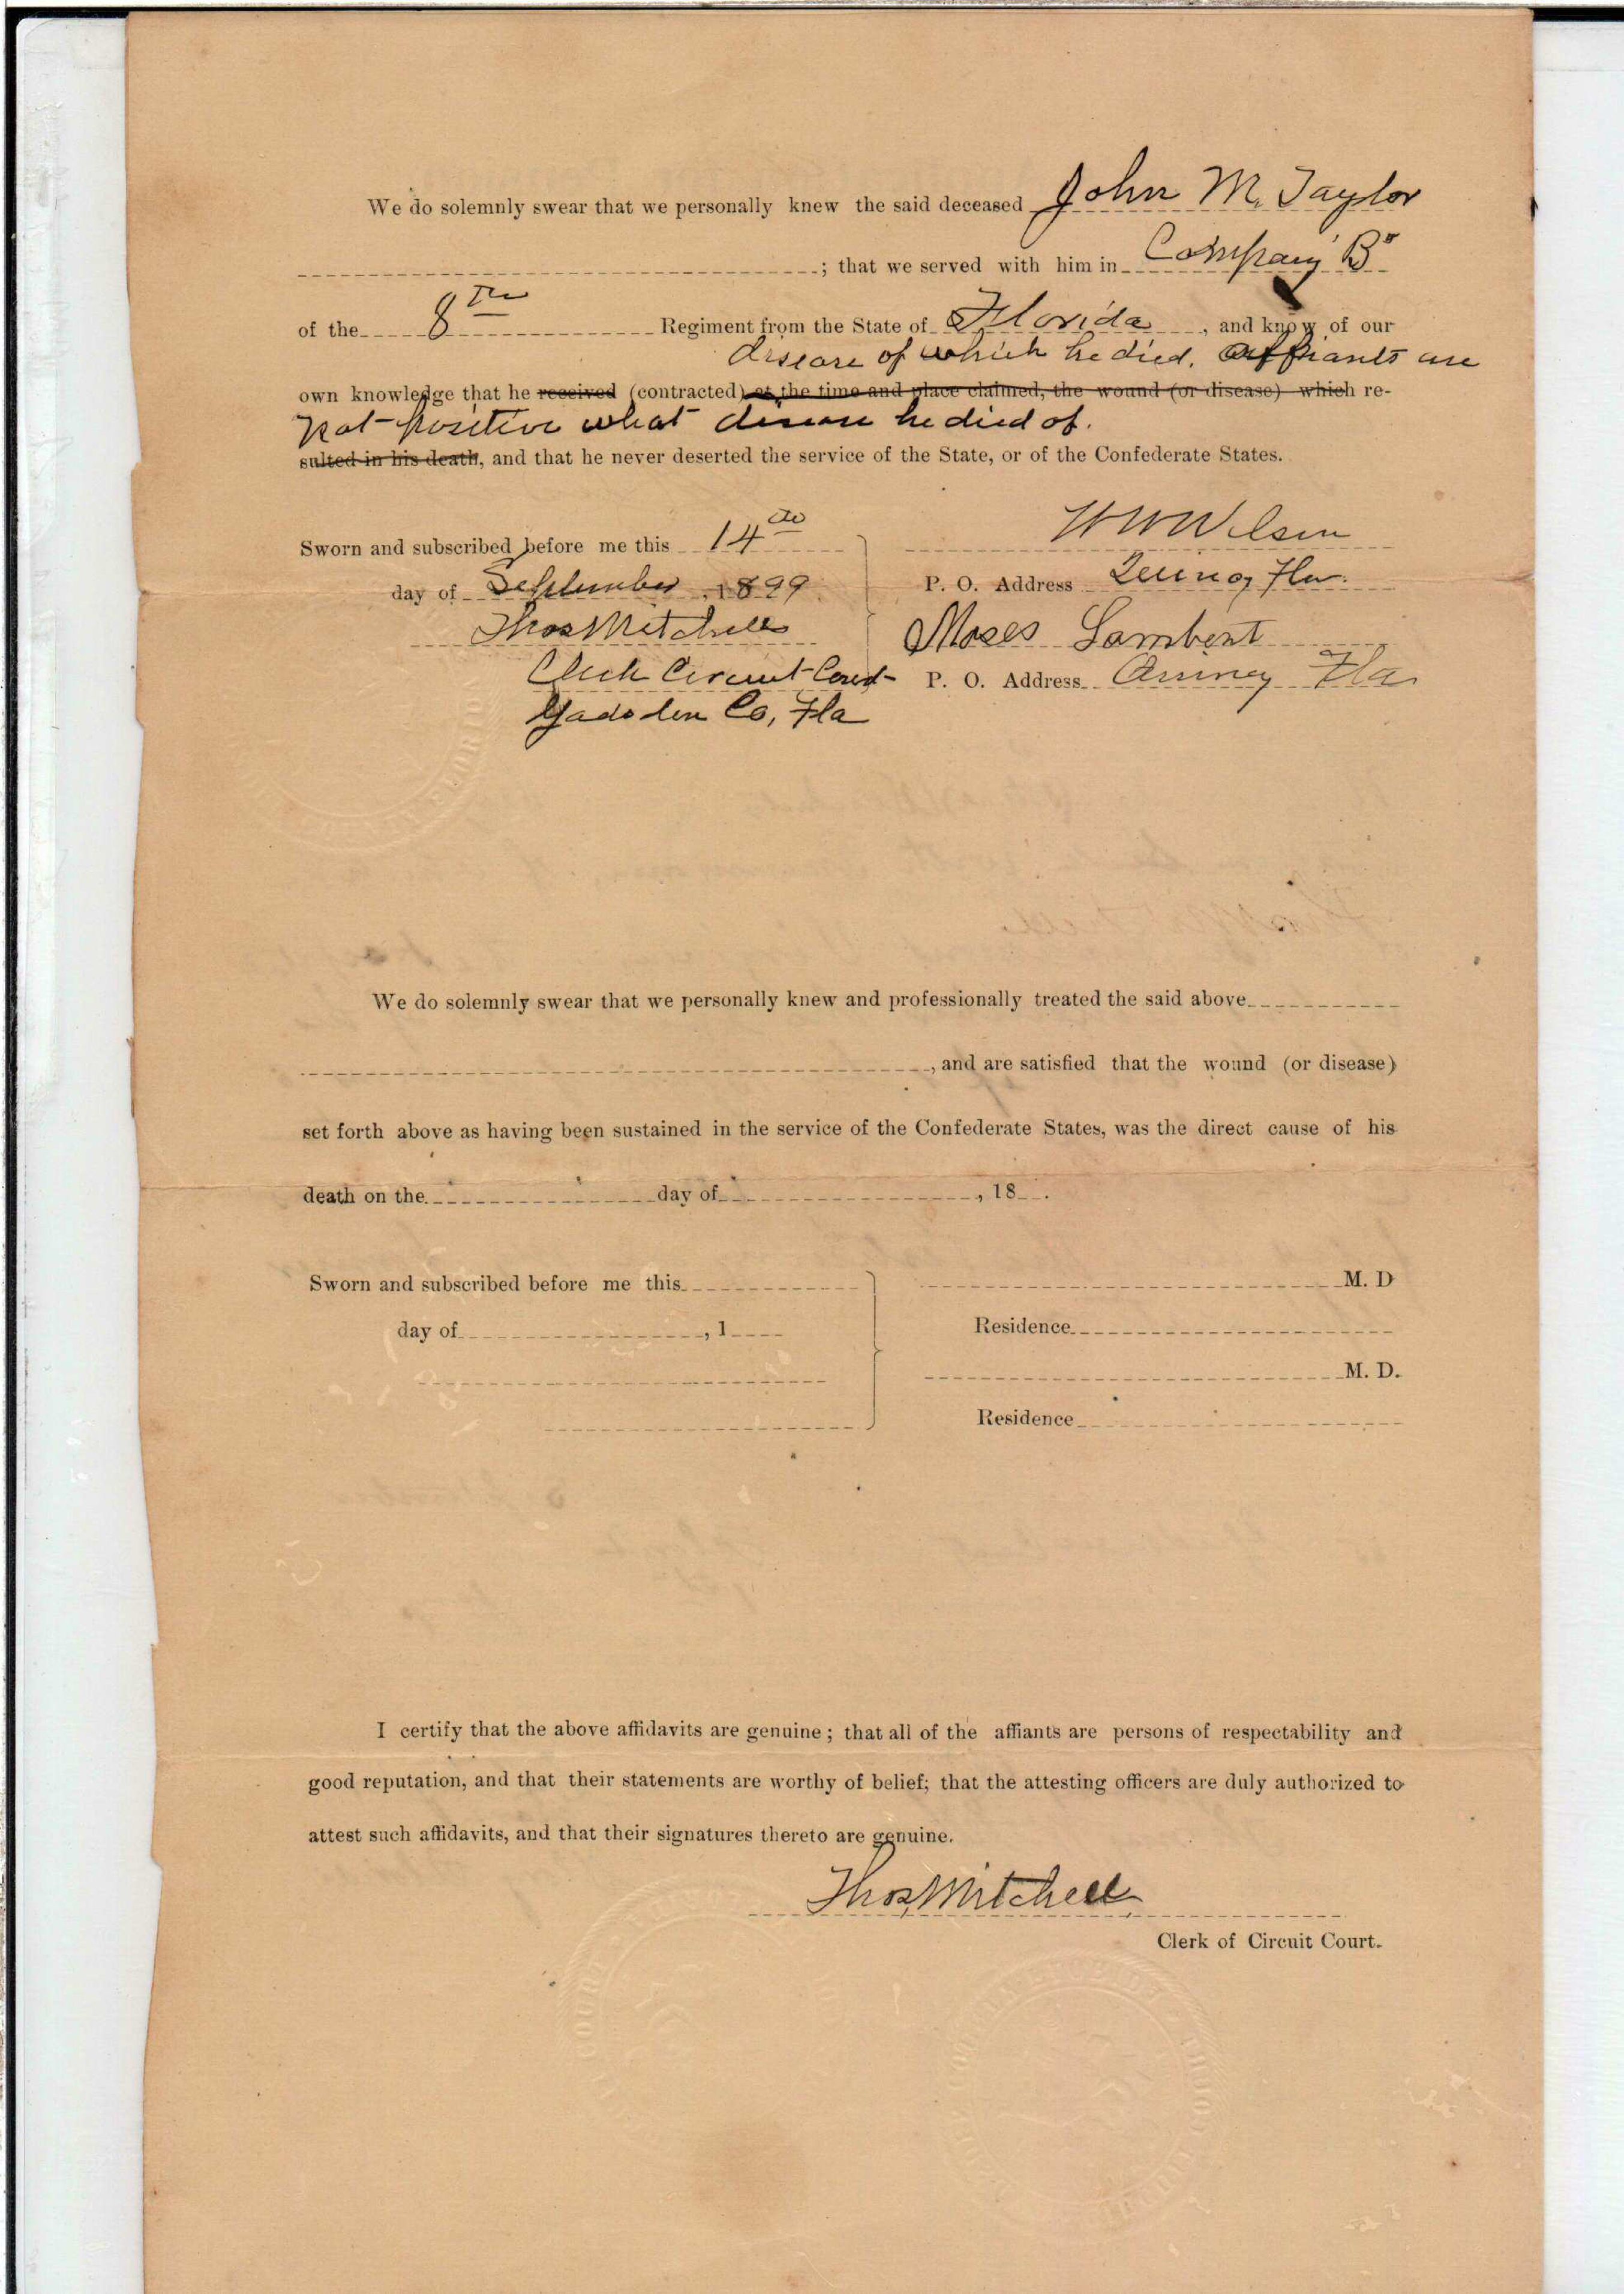 We do solemnly swear that we personally knew the said deceased John M. Taylor
; that we served with him in Company B
of the 8th Regiment from the State of Florida, and know of our
disease of which he died. Affiants are
own knowledge that he received (contracted) at the time and place claimed, the wound (or disease) which re-
not positive what disease he died of.
sulted in his death, and that he never deserted the service of the State, or of the Confederate States.
Sworn and subscribed before me this 14th
day of September, 1899
Thos Mitchell
Clerk Circuit Court
Gadsden Co, Fla
W W Wilson
P. O. Address Quincy Fla.
Moses Lambert
P. O. Address Quincy Fla
We do solemnly swear that we personally knew and professionally treated the said above
, and are satisfied that the wound (or disease)
set forth above as having been sustained in the service of the Confederate States, was the direct cause of his
death on the day of , 18 .
Sworn and subscribed before me this
day of , 1
M. D
Residence
M. D.
Residence
I certify that the above affidavits are genuine; that all of the affiants are persons of respectability and
good reputation, and that their statements are worthy of belief; that the attesting officers are duly authorized to
attest such affidavits, and that their signatures thereto are genuine.
Thos Mitchell
Clerk of Circuit Court.